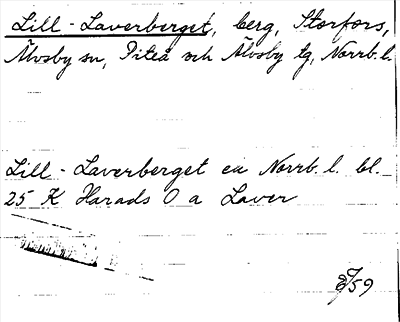 Lill-Laverberget, berg, Storfors,
Älvsby sn, Piteå och Älvsby tg, Norrb. l.
Lill-Laverberget ek Norrb. l. bl.
25 K Harads O a Laver
59